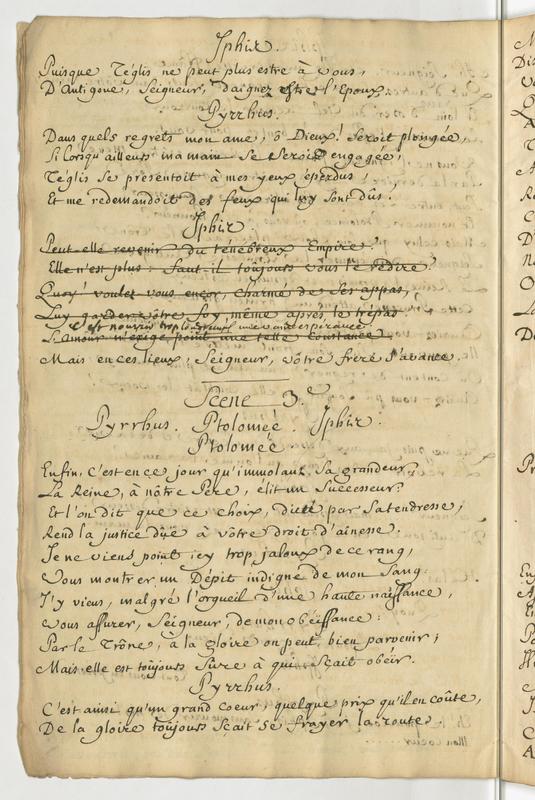 Iphix.
Puisque Téglis ne peut plus estre à vous,
D'Antigone, Seigneur, daignez estre l'Epoux.
Pyrrhus.
Dans quels regrets mon ame, ô Dieux! seroit plongée,
Si lorsqu'ailleurs ma main se seroit engagée,
Téglis se presentoit à mes yeux éperdus,
Et me redemandoit des feux qui luy sont dûs.
Iphix.
Peut-elle revenir du ténébreux Empire?
Elle n'est plus: faut-il toujours vous le redire
Quoy! voulez vous encor, charmé de ses appas,
Luy garder vôtre foy, même après le trépas
C'est nourrir trop longtemps une vaine esperance
L'Amour n'exige point une telle constance.
Mais en ces lieux, Seigneur, vôtre frére s'avance.
Scene 3.e
Pyrrhus. Ptolomée. Iphix.
Ptolomée
Enfin, C'est en ce jour qu'immolant sa grandeur,
La Reine, à nôtre Pere, élit un Successeur?
Et l'on dit que ce choix, dicté par sa tendresse,
Rend la justice düe à vôtre droit d'aînesse.
Je ne viens point icy trop jaloux de ce rang,
Vous montrer un Dépit indigne de mon Sang:
J'y viens, malgré l'orgueil d'une haute naissance,
Vous assurer, Seigneur, de mon obéissance:
Par le Trône, à la gloire on peut bien parvenir;
Mais elle est toujours sûre à qui sçait obéir.
Pyrrhus.
C'est ainsi qu'un grand coeur, quelque prix qu'il en coûte,
De la gloire toujours sçait se frayer la route.